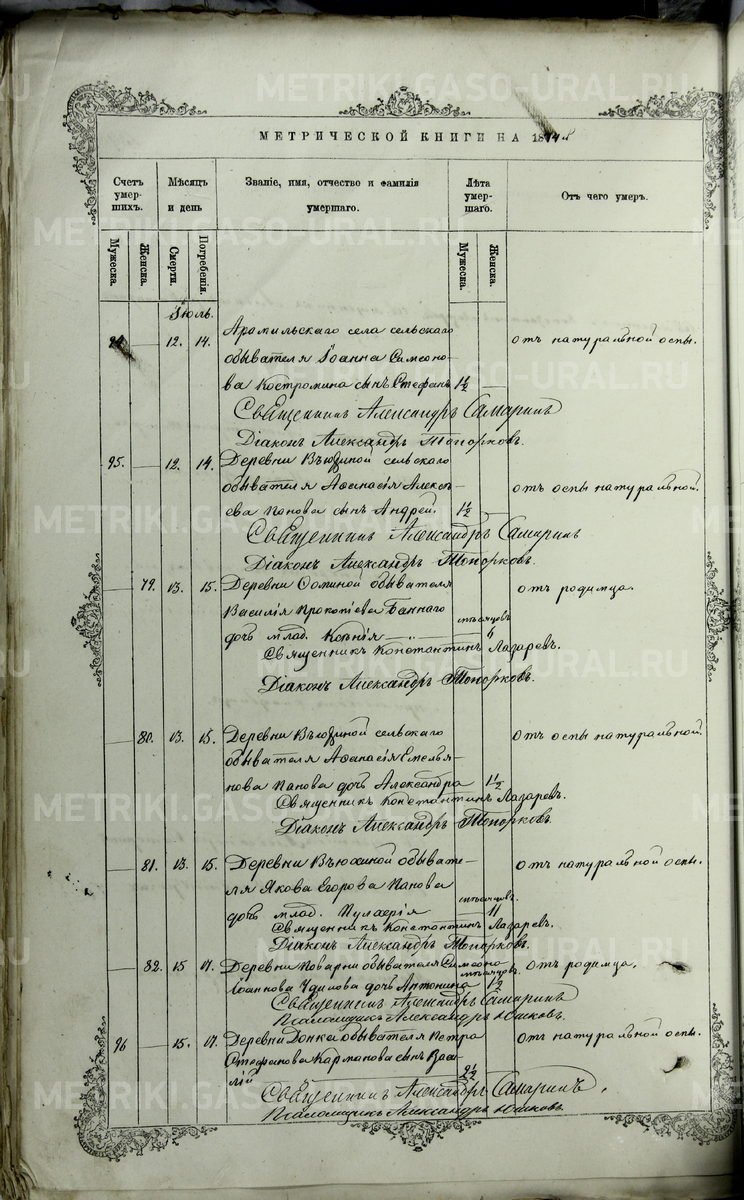 МЕТРИЧЕСКОЙ КНИГИ НА 1874 г.
Счетъ умерших. Мѣсяцъ и день Званіе, имя, отчество и фамилія умершаго. Лѣта умершаго. Отъ чего умеръ.
Мужеска. Женска. Смерти. Погребенія. Мужеска. Женска.
Іюль.
94 — 12. 14. Арамильскаго села сельскаго отъ натуральной оспы.
обывателя Іоанна Симеоно-
ва Костромина сынъ Стефанъ 1½ —
Священникъ Александръ Самаринъ
Діаконъ Александръ Топорковъ.
95. — 12. 14. Деревни Вьюхиной сельскаго
обывателя Аѳанасія Алексѣ- отъ оспы натуральной.
ева Панова сынъ Андрей. 1½ —
Священникъ Александръ Самаринъ
Діаконъ Александръ Топорковъ.
— 79. 13. 15. Деревни обывателя отъ родимца.
Василія Прокопіева Баннаго мѣсяцовъ
дочь млад. Ксенія — „ — 6
Священникъ Константинъ Лазаревъ.
Діаконъ Александръ Топорковъ.
— 80. 13. 15. Деревни Вьюхиной сельскаго отъ оспы натуральной.
обывателя Аѳанасія Емелья-
нова Панова дочь Александра 1½
Священникъ Константинъ Лазаревъ.
Діаконъ Александръ Топорковъ.
— 81. 13. 15. Деревни Вьюхиной обывате- отъ натуральной оспы.
ля Якова Егорова Панова
дочь млад. Пулхерія мѣсяцовъ. — 11
Священникъ Константинъ Лазаревъ.
Діаконъ Александръ Топорковъ.
— 82. 15 17. Деревни Поварни обывателя Симеона отъ родимца.
Іоаннова дочь Антонина мѣсяцовъ 1½
Священникъ Александръ Самаринъ
Псаломщикъ Александръ Юшковъ.
96 — 15. 17. Деревни обывателя Петра отъ натуральной оспы.
Стефанова Карманова сынъ Васи-
лій 2½
Священникъ Александръ Самаринъ.
Псаломщикъ Александръ Юшковъ.
METRIKI.GASO-URAL.RU